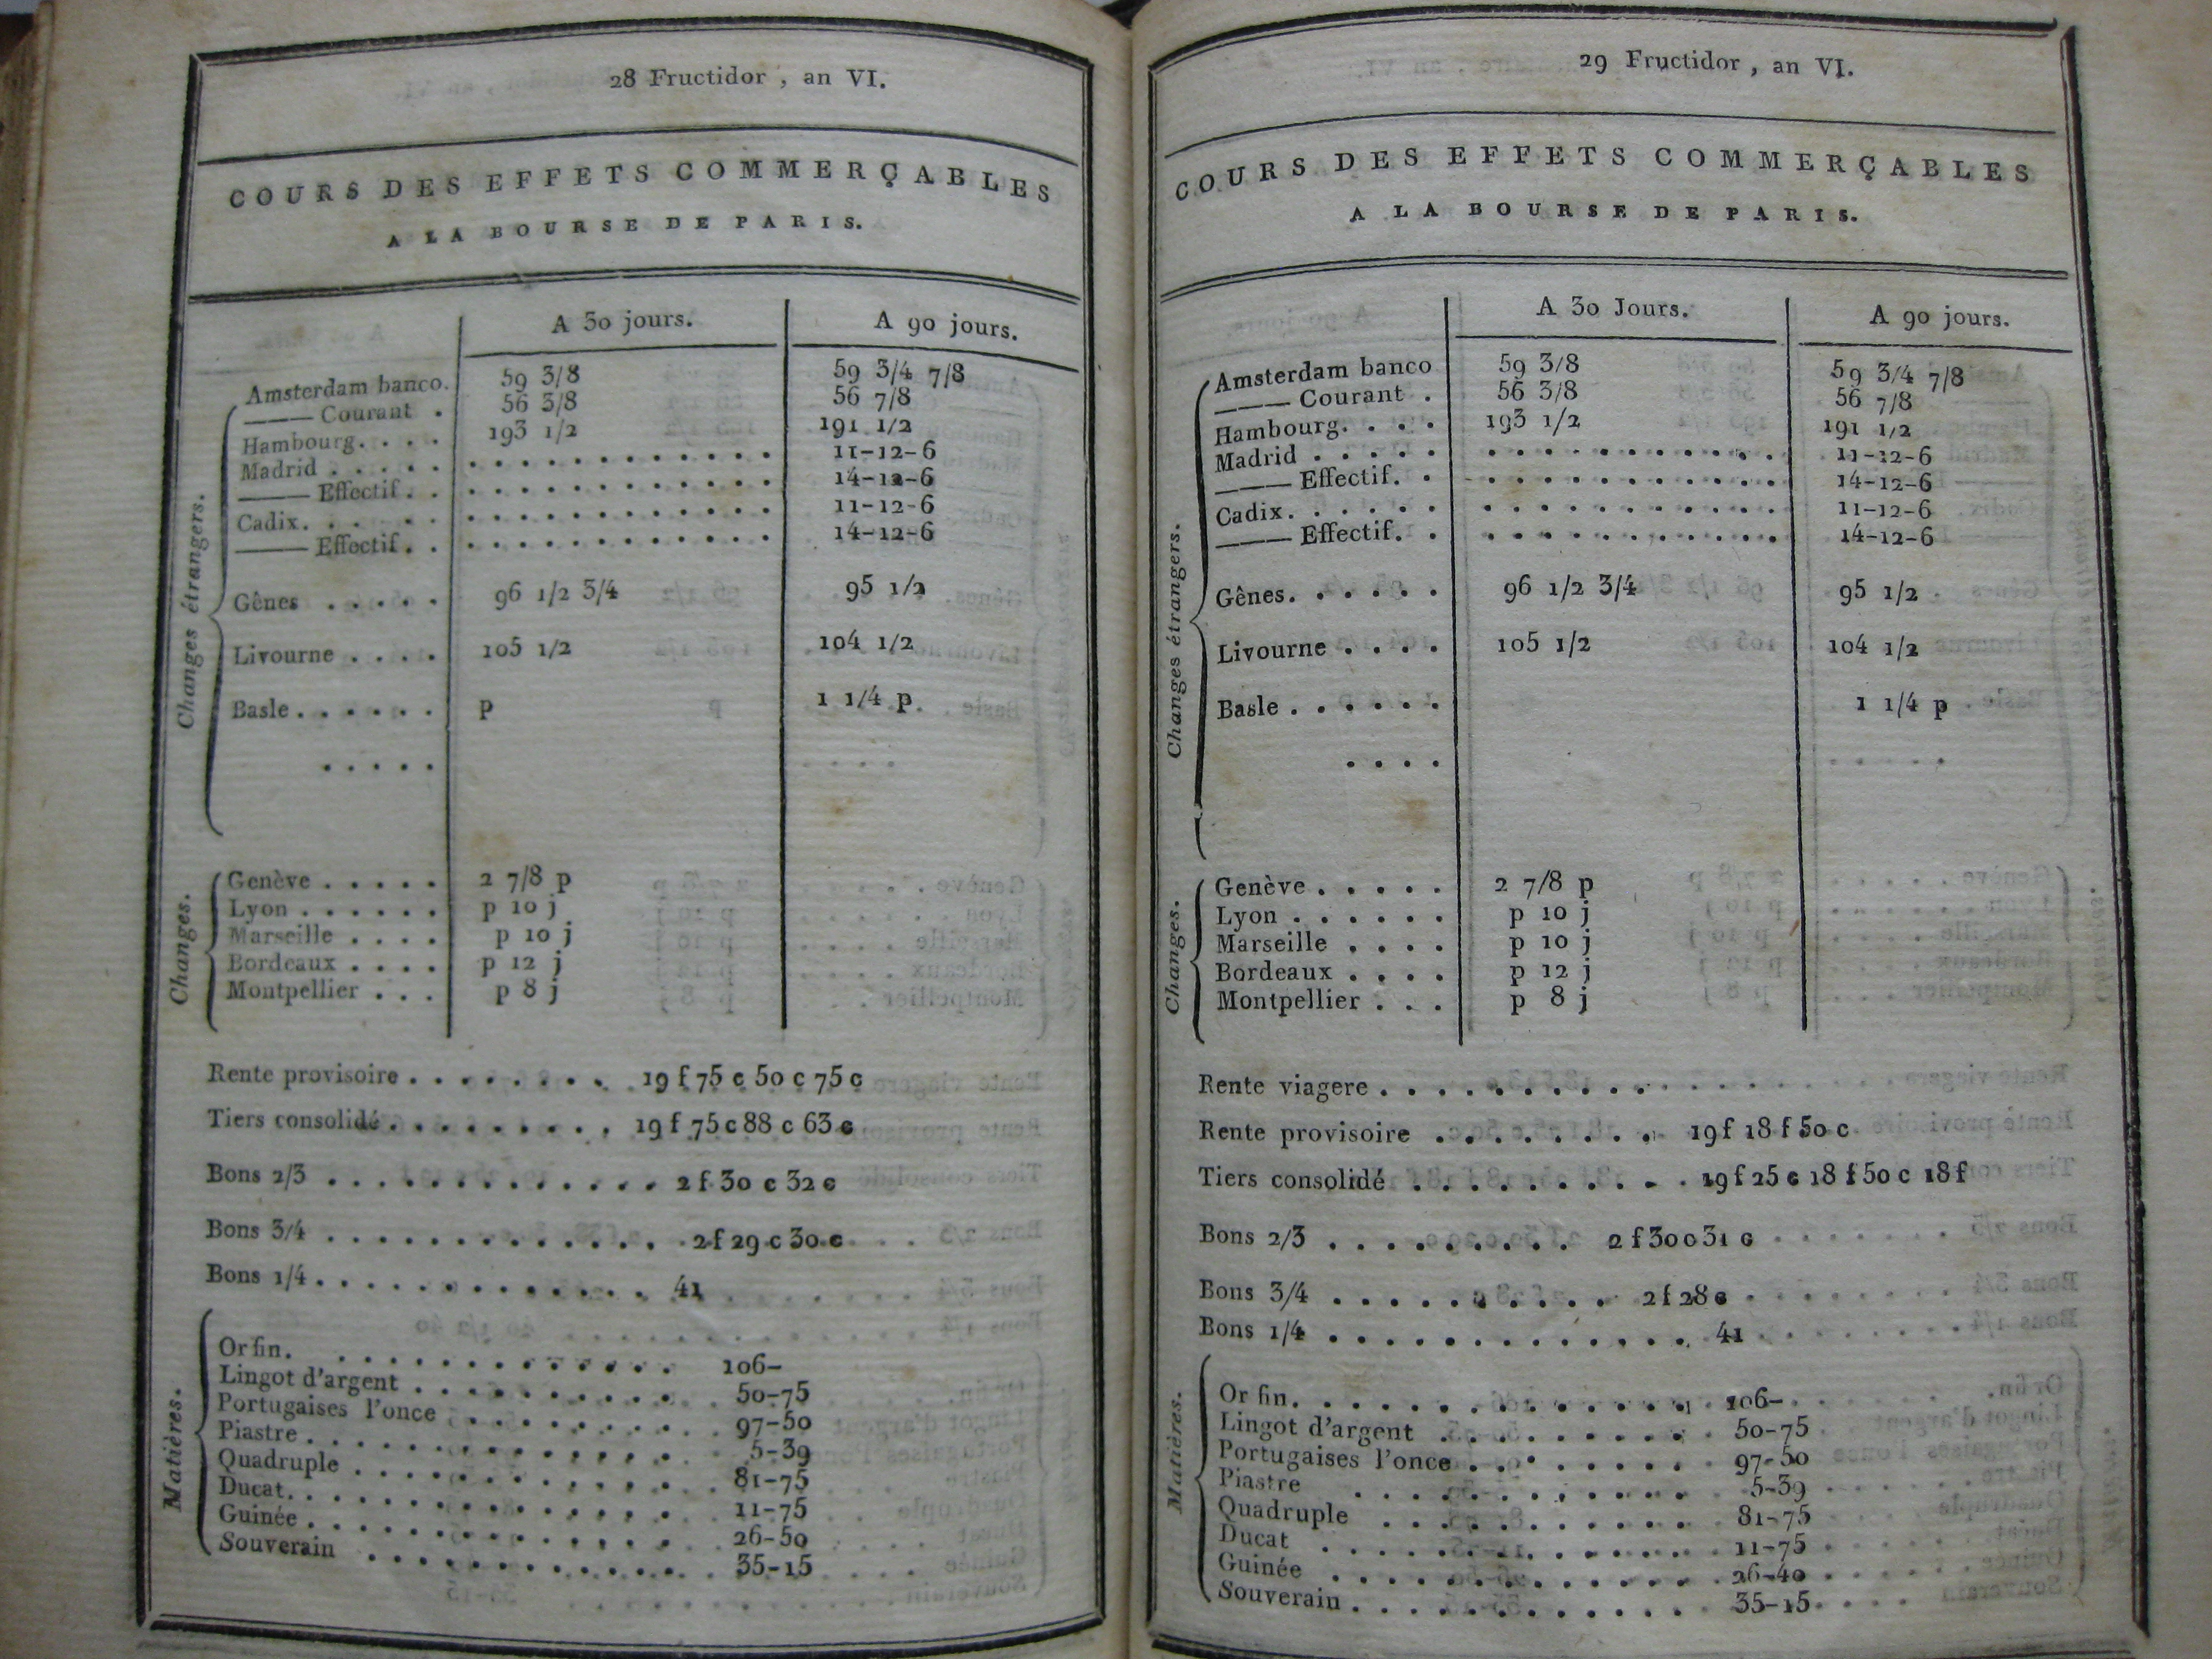 28 Fructidor, an VI.
COURS DES EFFETS COMMERÇABLES
A LA BOURSE DE PARIS.
A 30 jours. A 90 jours.
Changes étrangers.
Amsterdam banco. 59 3/8 59 3/4 7/8
——— Courant . 56 3/8 56 7/8
Hambourg. . . . 193 1/2 191 1/2
Madrid . . . . . . . . . . . . . . . . . 11-12-6
——— Effectif. . . . . . . . . . . . . . 14-12-6
Cadix. . . . . . . . . . . . . . . . . . 11-12-6
——— Effectif. . . . . . . . . . . . . . 14-12-6
Gênes . . . . . 96 1/2 3/4 95 1/2
Livourne . . . . 105 1/2 104 1/2
Basle . . . . . . p 1 1/4 p
. . . . .
Changes.
Genève . . . . . 2 7/8 p
Lyon . . . . . . p 10 j
Marseille . . . . p 10 j
Bordeaux . . . . p 12 j
Montpellier . . . p 8 j
Rente provisoire . . . . . . . . 19 f 75 c 50 c 75 c
Tiers consolidé . . . . . . . . . 19 f 75 c 88 c 63 c
Bons 2/3 . . . . . . . . . . . . . 2 f 30 c 32 c
Bons 3/4 . . . . . . . . . . . . . 2 f 29 c 30 c
Bons 1/4 . . . . . . . . . . . . . 41
Matières.
Or fin. . . . . . . . . . . . . . 106-
Lingot d'argent . . . . . . . . . . . 50-75
Portugaises l'once . . . . . . . . . . 97-50
Piastre . . . . . . . . . . . . . . . 5-39
Quadruple . . . . . . . . . . . . . . 81-75
Ducat. . . . . . . . . . . . . . . . 11-75
Guinée . . . . . . . . . . . . . . . 26-50
Souverain . . . . . . . . . . . . . . 35-15
29 Fructidor, an VI.
COURS DES EFFETS COMMERÇABLES
A LA BOURSE DE PARIS.
A 30 Jours. A 90 jours.
Changes étrangers.
Amsterdam banco 59 3/8 59 3/4 7/8
——— Courant . 56 3/8 56 7/8
Hambourg. . . . 193 1/2 191 1/2
Madrid . . . . . . . . . . . . . . . . . 11-12-6
——— Effectif. . . . . . . . . . . . . . 14-12-6
Cadix. . . . . . . . . . . . . . . . . . 11-12-6
——— Effectif. . . . . . . . . . . . . . 14-12-6
Gênes. . . . . . 96 1/2 3/4 95 1/2
Livourne . . . . 105 1/2 104 1/2
Basle . . . . . . 1 1/4 p
. . . .
Changes.
Genève . . . . . 2 7/8 p
Lyon . . . . . . p 10 j
Marseille . . . . p 10 j
Bordeaux . . . . p 12 j
Montpellier . . . p 8 j
Rente viagere . . . . . . . . . .
Rente provisoire . . . . . . . . 19 f 18 f 50 c
Tiers consolidé . . . . . . . . . . 19 f 25 c 18 f 50 c 18 f
Bons 2/3 . . . . . . . . . 2 f 30 c 31 c
Bons 3/4 . . . . . . . . . . 2 f 28 c
Bons 1/4 . . . . . . . . . . . . . 41
Matières.
Or fin. . . . . . . . . . . . . . . 106-
Lingot d'argent . . . . . . . . . 50-75
Portugaises l'once . . . . . . . . . 97-50
Piastre . . . . . . . . . . . . 5-39
Quadruple . . . . . . . . . . . 81-75
Ducat . . . . . . . . . . . . . 11-75
Guinée . . . . . . . . . . . . . 26-40
Souverain . . . . . . . . . . . . . 35-15